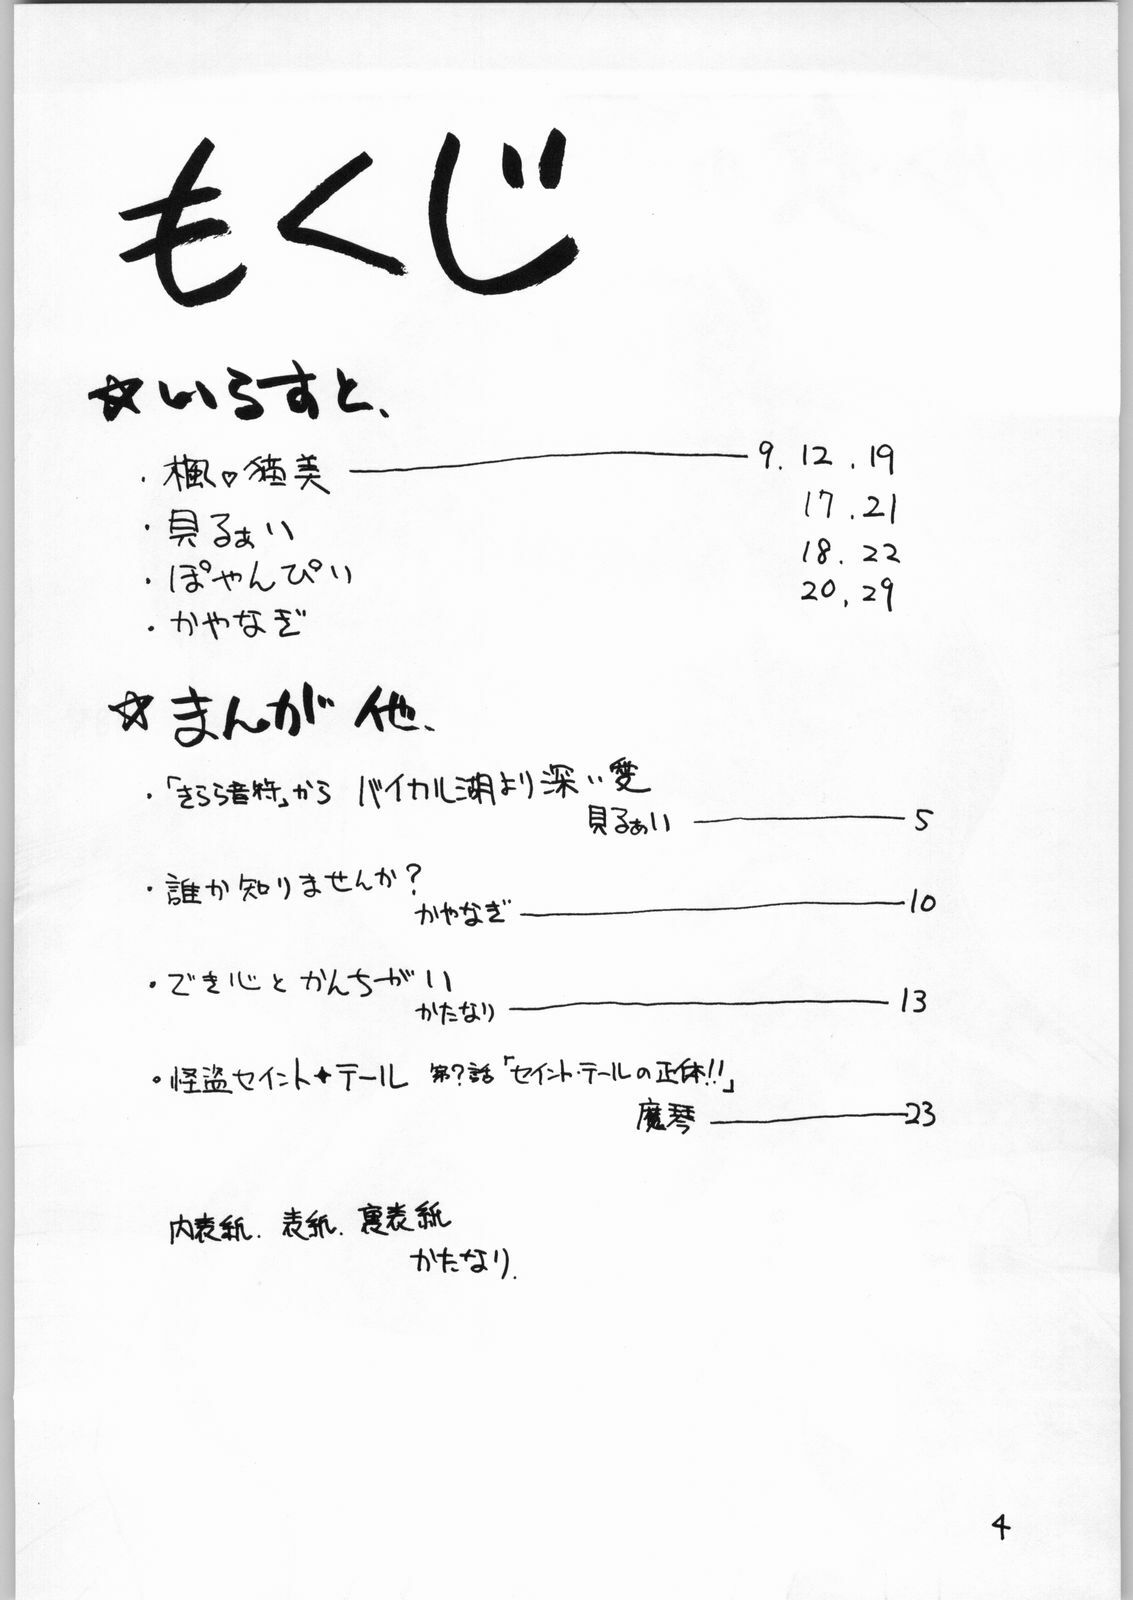 もくじ
☆いらすと、
・楓♡猫美 9.12.19
・貝るぁい 17.21
・ぽやんぴい 18.22
・かやなぎ 20.29
☆まんが他、
・「きらら音符」から バイカル湖より深い愛
貝るぁい 5
・誰か知りませんか?
かやなぎ 10
・でき心とかんちがい
かたなり 13
・怪盗セイント✦テール 第?話「セイント・テールの正体!!」
魔琴 23
内表紙、表紙、裏表紙
かたなり.
4